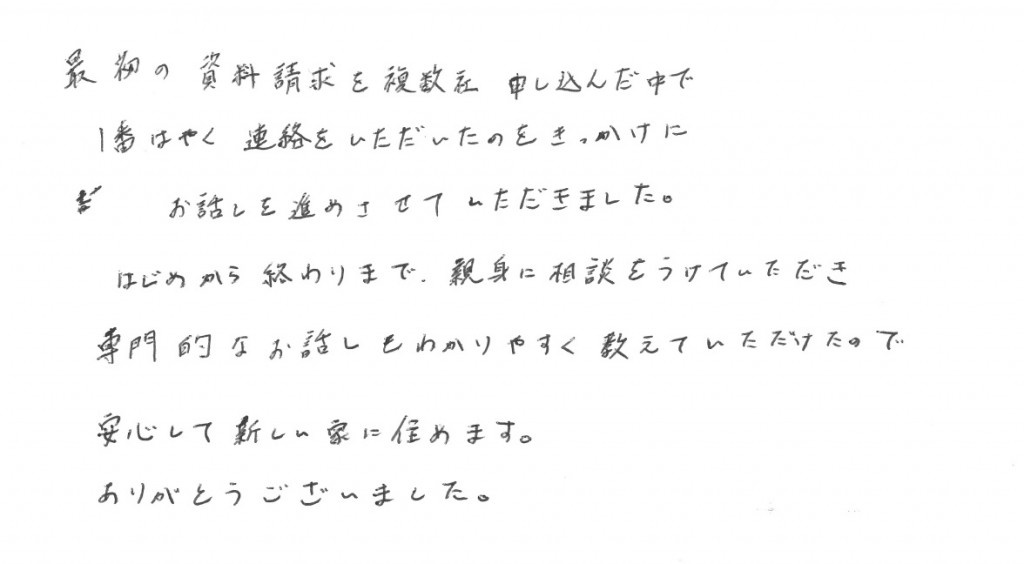 最初の資料請求を複数社 申し込んだ中で
1番はやく 連絡をいただいたのをきっかけに
お話しを進めさせていただきました。
はじめから終わりまで、親身に相談をうけていただき
専門的なお話しもわかりやすく教えていただけたので
安心して新しい家に住めます。
ありがとうございました。